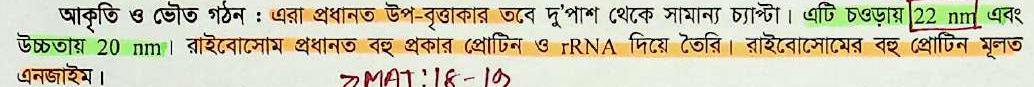 আকৃতি ও ভৌত গঠন : এরা প্রধানত উপ-বৃত্তাকার তবে দু'পাশ থেকে সামান্য চ্যাপ্টা। এটি চওড়ায় 22 nm এবং
উচ্চতায় 20 nm। রাইবোসোম প্রধানত বহু প্রকার প্রোটিন ও rRNA দিয়ে তৈরি। রাইবোসোমের বহু প্রোটিন মূলত
এনজাইম।
→MAT:18-19